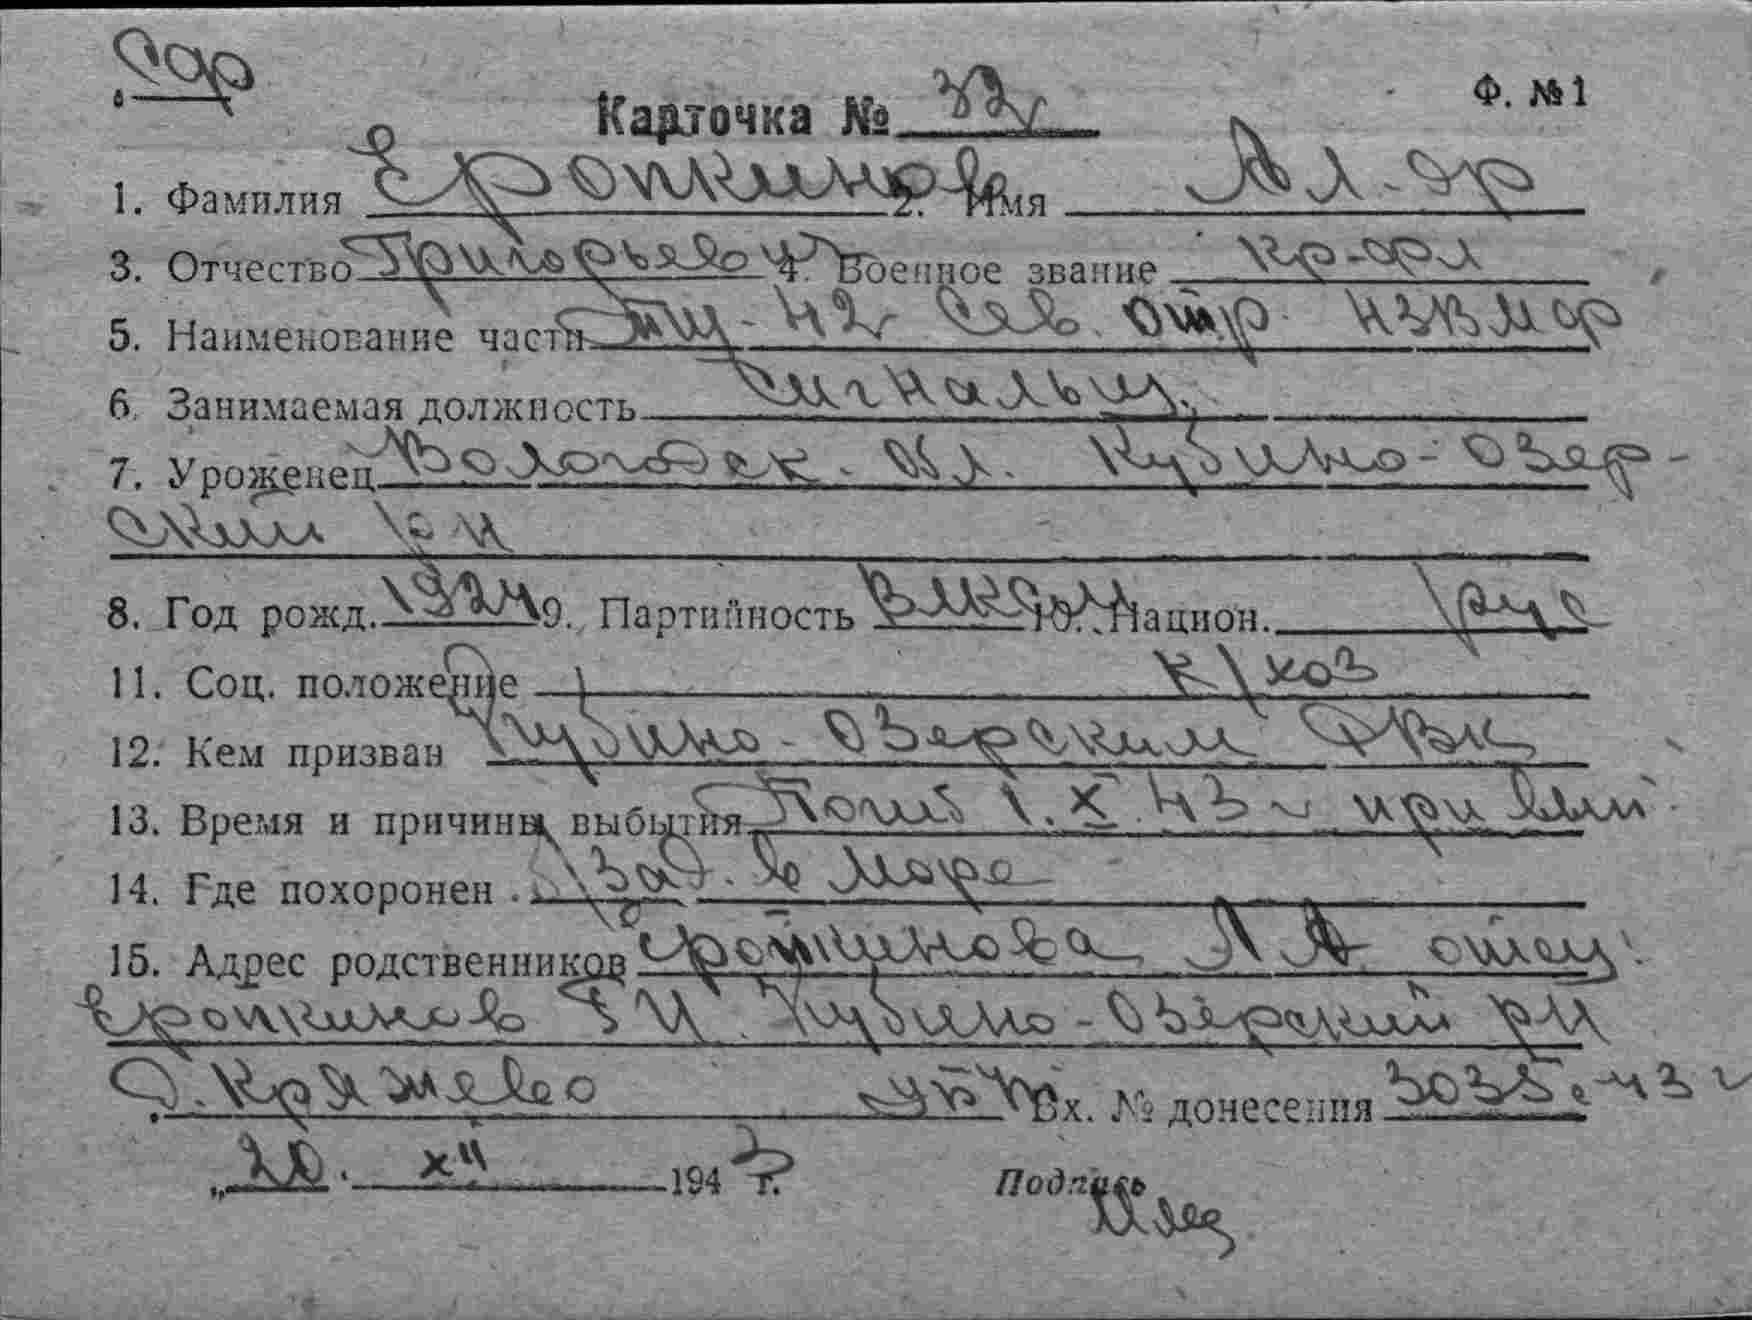 сдр
Карточка № 32 Ф. №1
1. Фамилия Еропкинов 2. Имя Ал-др
3. Отчество Григорьевич 4. Военное звание кр-фл
5. Наименование части ТЩ-42 Сев. отр.
6. Занимаемая должность Сигнальщ.
7. Уроженец Вологодск. обл. Кубино-Озер-
ский р-н
8. Год рожд. 1924 9. Партийность ВЛКСМ 10. Национ. рус
11. Соц. положение к/хоз
12. Кем призван Кубино-Озерским РВК
13. Время и причины выбытия Погиб 1.X.43 г при вып
14. Где похоронен . зад. в море
15. Адрес родственников Еропкинова А А отец:
Еропкинов Г И. Кубино-Озерский рн
д. Кряжево Вх. № донесения 3035с-43 г
„20. XII 1943 г.
Подпись